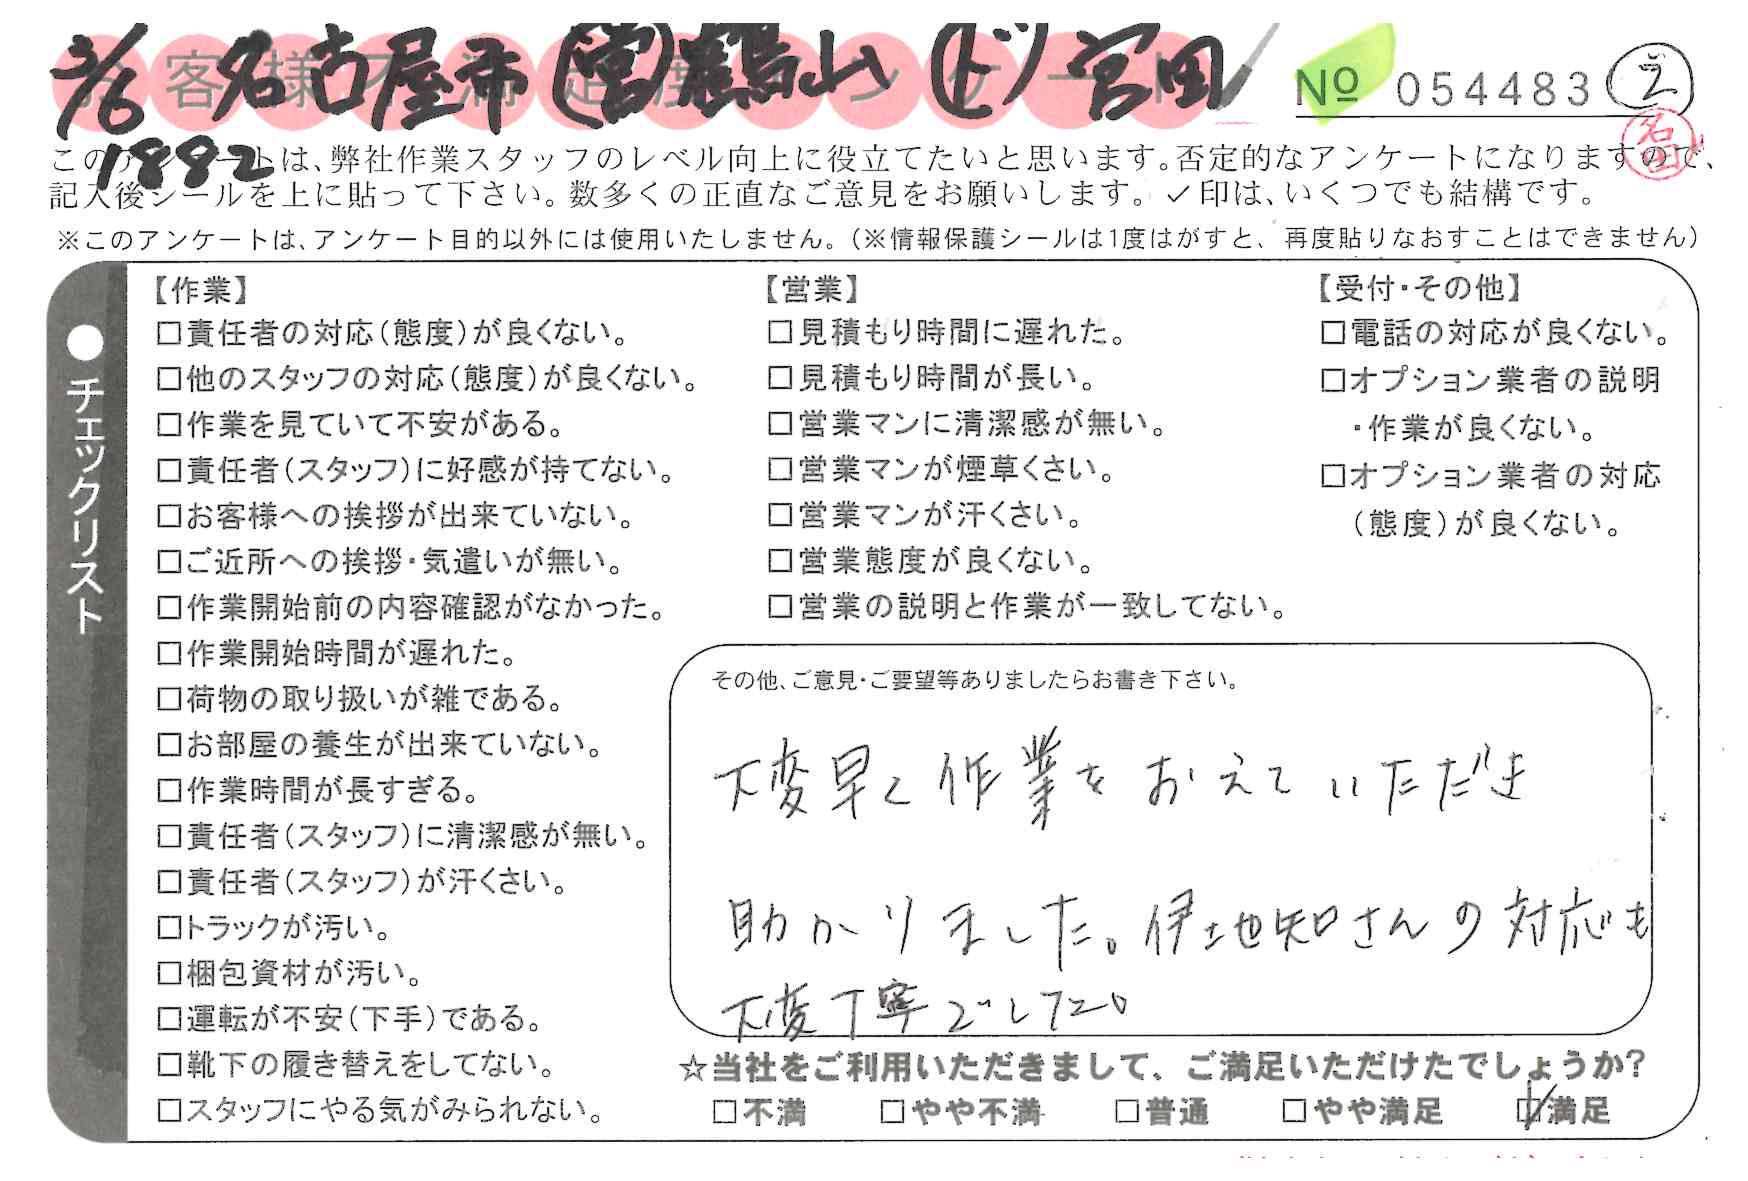 3/6 名古屋市 (営)鶴山 (ド)宮田
お客様不満足度アンケート
№ 054483 2
1882
名古
このアンケートは、弊社作業スタッフのレベル向上に役立てたいと思います。否定的なアンケートになりますので、
記入後シールを上に貼って下さい。数多くの正直なご意見をお願いします。✓印は、いくつでも結構です。
※このアンケートは、アンケート目的以外には使用いたしません。(※情報保護シールは1度はがすと、再度貼りなおすことはできません)
●チェックリスト
【作業】
□責任者の対応(態度)が良くない。
□他のスタッフの対応(態度)が良くない。
□作業を見ていて不安がある。
□責任者(スタッフ)に好感が持てない。
□お客様への挨拶が出来ていない。
□ご近所への挨拶・気遣いが無い。
□作業開始前の内容確認がなかった。
□作業開始時間が遅れた。
□荷物の取り扱いが雑である。
□お部屋の養生が出来ていない。
□作業時間が長すぎる。
□責任者(スタッフ)に清潔感が無い。
□責任者(スタッフ)が汗くさい。
□トラックが汚い。
□梱包資材が汚い。
□運転が不安(下手)である。
□靴下の履き替えをしてない。
□スタッフにやる気がみられない。
【営業】
□見積もり時間に遅れた。
□見積もり時間が長い。
□営業マンに清潔感が無い。
□営業マンが煙草くさい。
□営業マンが汗くさい。
□営業態度が良くない。
□営業の説明と作業が一致してない。
【受付・その他】
□電話の対応が良くない。
□オプション業者の説明
・作業が良くない。
□オプション業者の対応
(態度)が良くない。
その他、ご意見・ご要望等ありましたらお書き下さい。
大変早く作業をおえていただき
助かりました。伊地知さんの対応も
大変丁寧でした。
☆当社をご利用いただきまして、ご満足いただけたでしょうか?
□不満 □やや不満 □普通 □やや満足 ☑満足